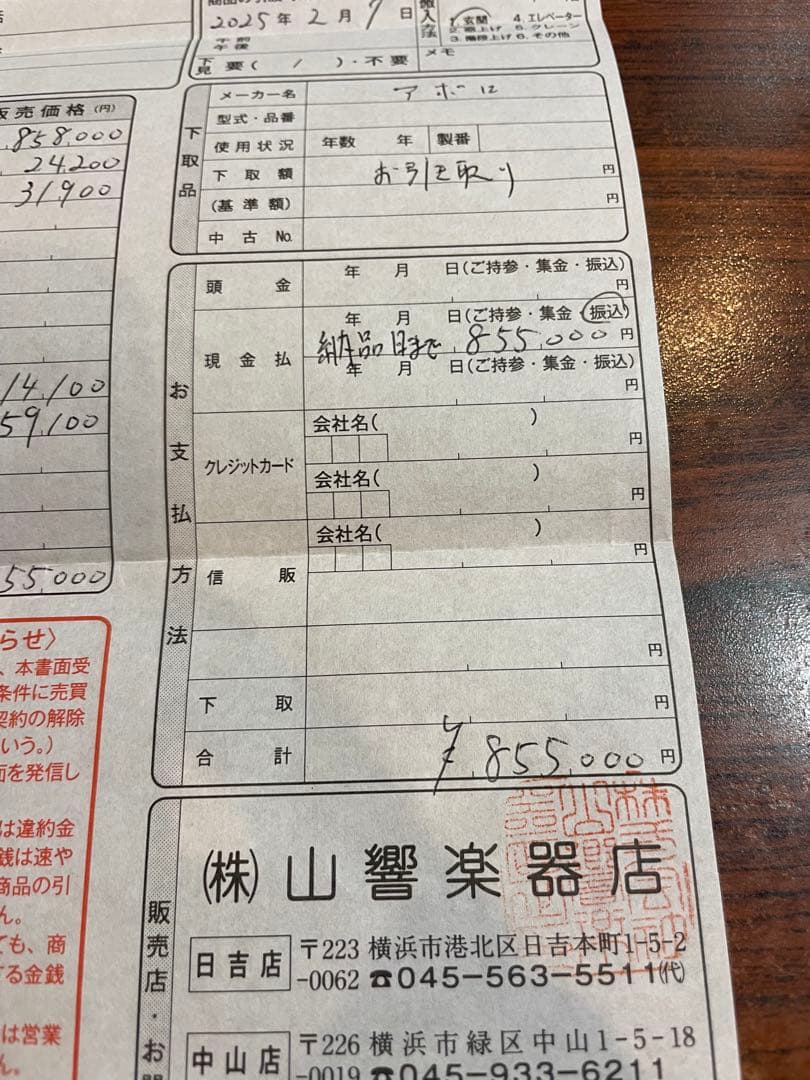 2025年 2月 7日
午前
午後
下見 要( / )・不要
搬入方法
1.玄関 4.エレベーター
2.吊上げ 5.クレーン
3.階段上げ 6.その他
メモ
販売価格(円)
858,000
24,200
31,900
14,100
59,100
55,000
下取品
メーカー名 アポロ
型式・品番
使用状況 年数 年 製番
下取額 お引き取り 円
(基準額) 円
中古No.
お支払方法
頭金 年 月 日(ご持参・集金・振込)
円
現金払 年 月 日(ご持参・集金・振込)
納品日まで 855,000円
年 月 日(ご持参・集金・振込)
円
クレジットカード
会社名( )
円
会社名( )
円
会社名( )
円
信販
円
下取 円
合計 ¥855,000円
らせ〉
、本書面受
条件に売買
契約の解除
いう。)
面を発信し
は違約金
銭は速や
商品の引
ん。
ても、商
する金銭
は営業
ん。
販売店・お問
(株)山響楽器店
日吉店 〒223 横浜市港北区日吉本町1-5-2
-0062 ☎045-563-5511(代)
中山店 〒226 横浜市緑区中山1-5-18
-0019 ☎045-933-6211